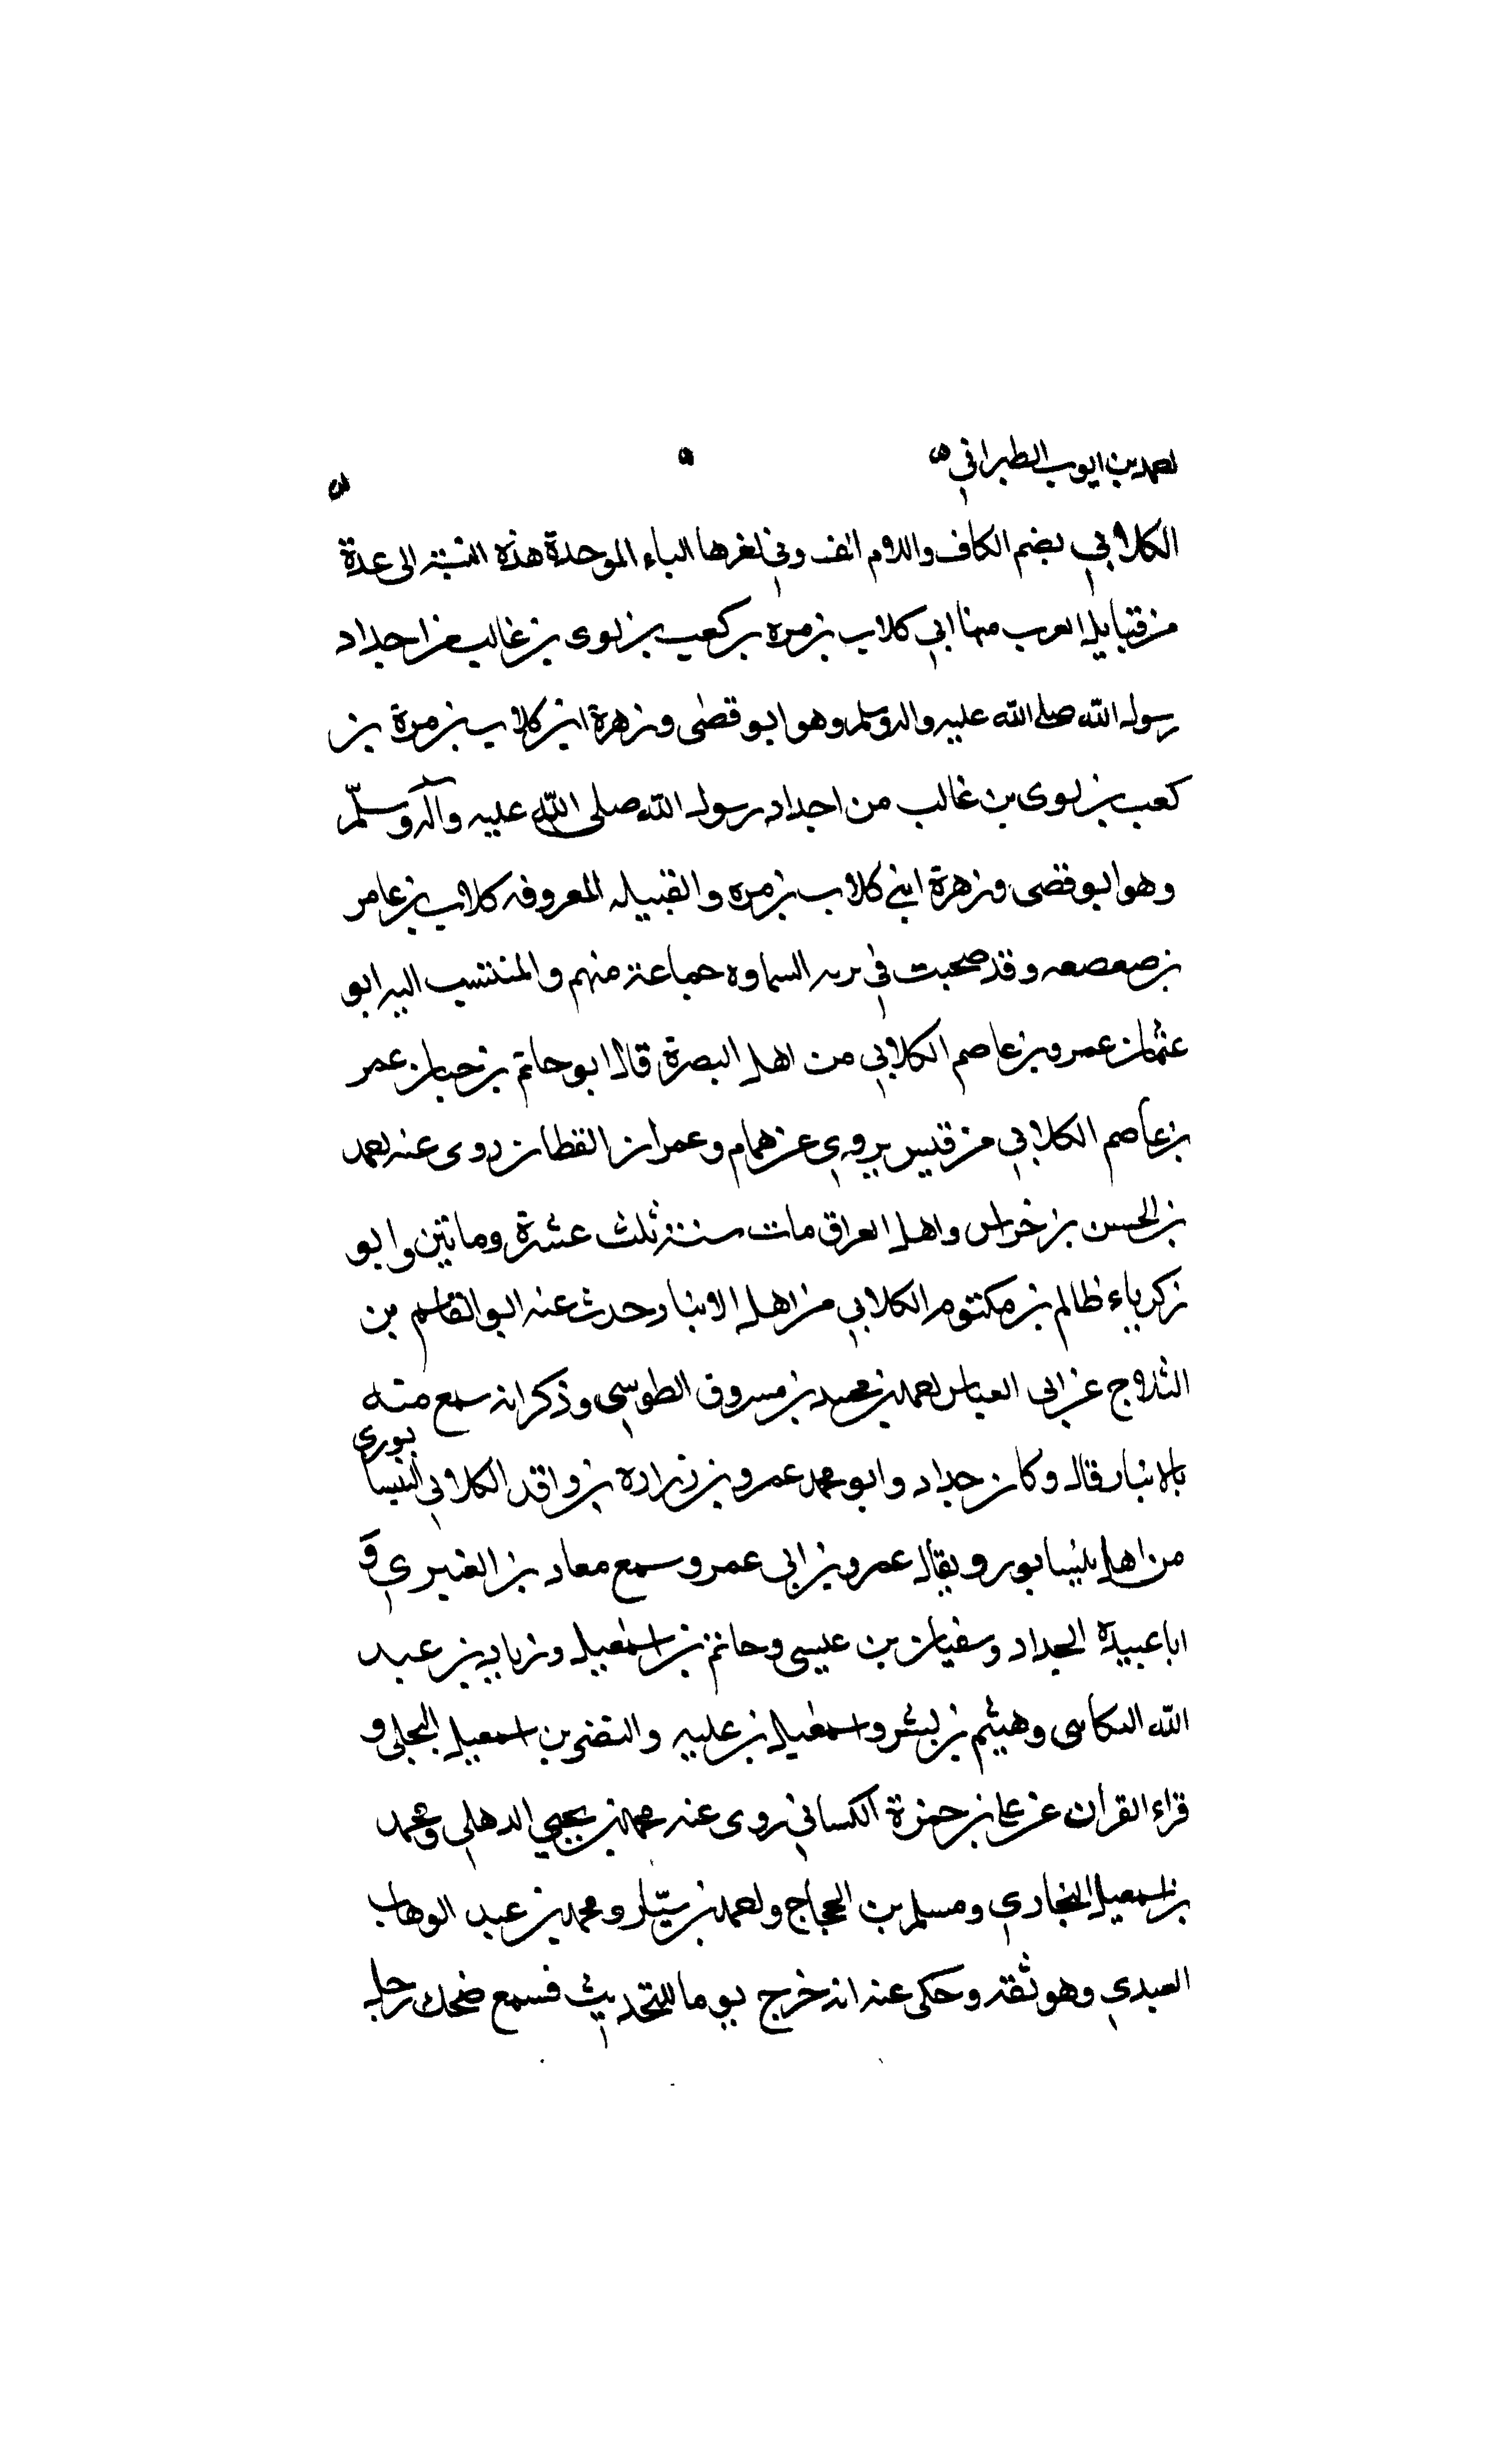 احمد بن ايوب الطبراني
الكلابي بضم الكاف واللام الف وفي اخرها الباء الموحدة هذه النسبة الى عدة
من قبايل العرب منها ابي كلاب بن مره بن كعب بن لوى بن غالب من اجداد
رسول الله صلى الله عليه واله وسلم وهو ابو قصى وزهرة ابن كلاب بن مرة بن
كعب بن لوى بن غالب من اجداد رسول الله صلى الله عليه وآله وسلّم
وهو ابو قصى وزهرة ابني كلاب بن مره والقبيله المعروفه كلاب بن عامر
بن صعصعه وقد صحبت في بريه السماوه جماعة منهم والمنتسب اليه ابو
عثمان عمرو بن عاصم الكلابي من اهل البصرة قال ابو حاتم بن حبان عمر
بن عاصم الكلابي من قيس يروي عن همام وعمران القطان روى عنه احمد
بن الحسن بن خراس واهل العراق مات سنة ثلث عشرة وماتين وابو
زكرياء ظالم بن مكتوم الكلابي من اهل الانبار حدث عنه ابو القاسم بن
الثلاج عن ابى العباس احمد بن محمد بن مسروق الطوسي وذكر انه سمع منه
بالانبار قال وكان جداد وابو محمد عمرو بن زراره بن واقد الكلابي النيسابوري
من اهل نيسابور ويقال عمرو بن ابى عمرو سمع معاد بن العنبري وَ
ابا عبيدة الحداد وسفيان بن عيسى وحاتم بن اسمعيل وزياد بن عبد
الله البكاسى وهيثم بن بشر واسمعيل بن عليه والنضر بن اسمعيل البجلي و
قراء القران عن على بن حمزة الكسائي روى عنه محمد بن يحيى الدهلي ومحمد
بن اسمعيل البخاري ومسلم بن الحجاج واحمد بن سيّار ومحمد بن عبد الوهاب
العبدي وهو ثقة وحكى عنه انه خرج يوما للتحديث فسمع ضحك رجل